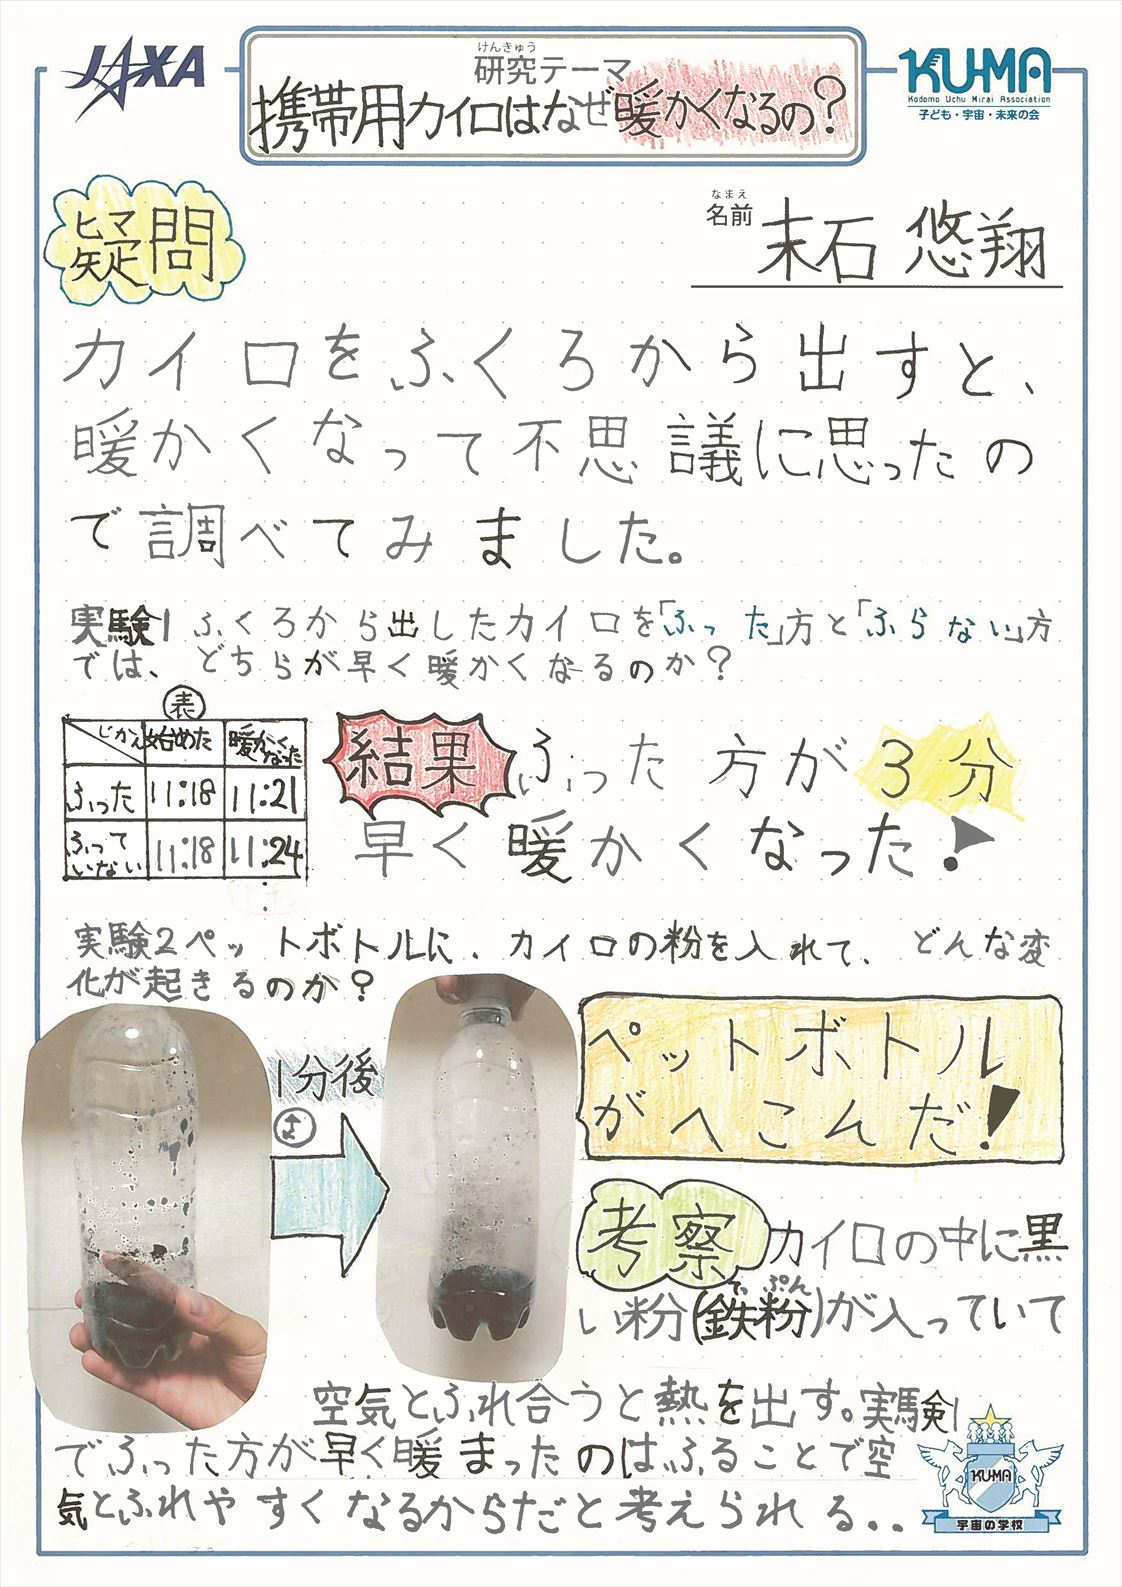 JAXA
けんきゅう
研究テーマ
携帯用カイロはなぜ暖かくなるの?
KU-MA
Kodomo Uchu Mirai Association
子ども・宇宙・未来の会
疑問
なまえ
名前 末石 悠翔
カイロをふくろから出すと、
暖かくなって不思議に思ったの
で調べてみました。
実験1 ふくろから出したカイロを「ふった」方と「ふらない」方
では、どちらが早く暖かくなるのか?
表
じかん 始めた 暖かくなった
ふった 11:18 11:21
ふっていない 11:18 11:24
結果 ふった方が3分
早く暖かくなった!
実験2 ペットボトルに、カイロの粉を入れて、どんな変
化が起きるのか?
1分後
ペットボトル
がへこんだ!
考察 カイロの中に黒
てっぷん
い粉(鉄粉)が入っていて
空気とふれ合うと熱を出す。実験1
でふった方が早く暖まったのはふることで空
気とふれやすくなるからだと考えられる..
KU-MA
宇宙の学校